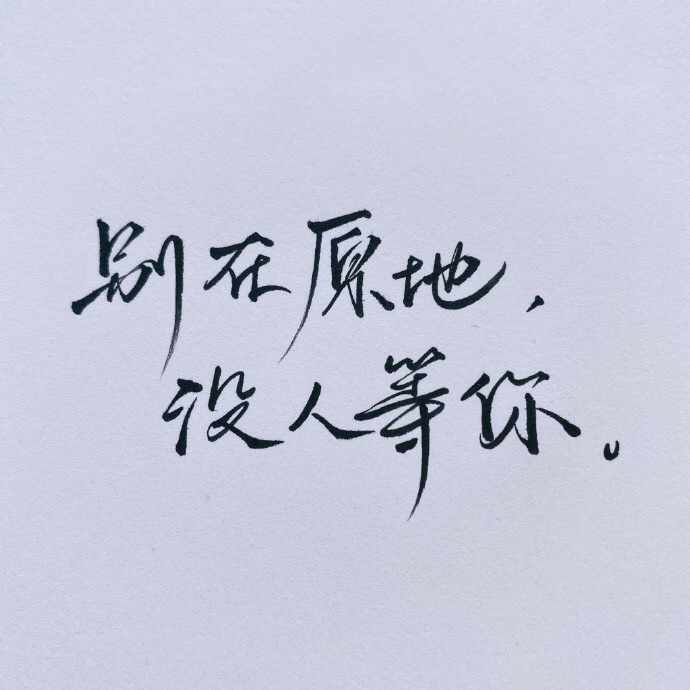 别在原地，
没人等你。